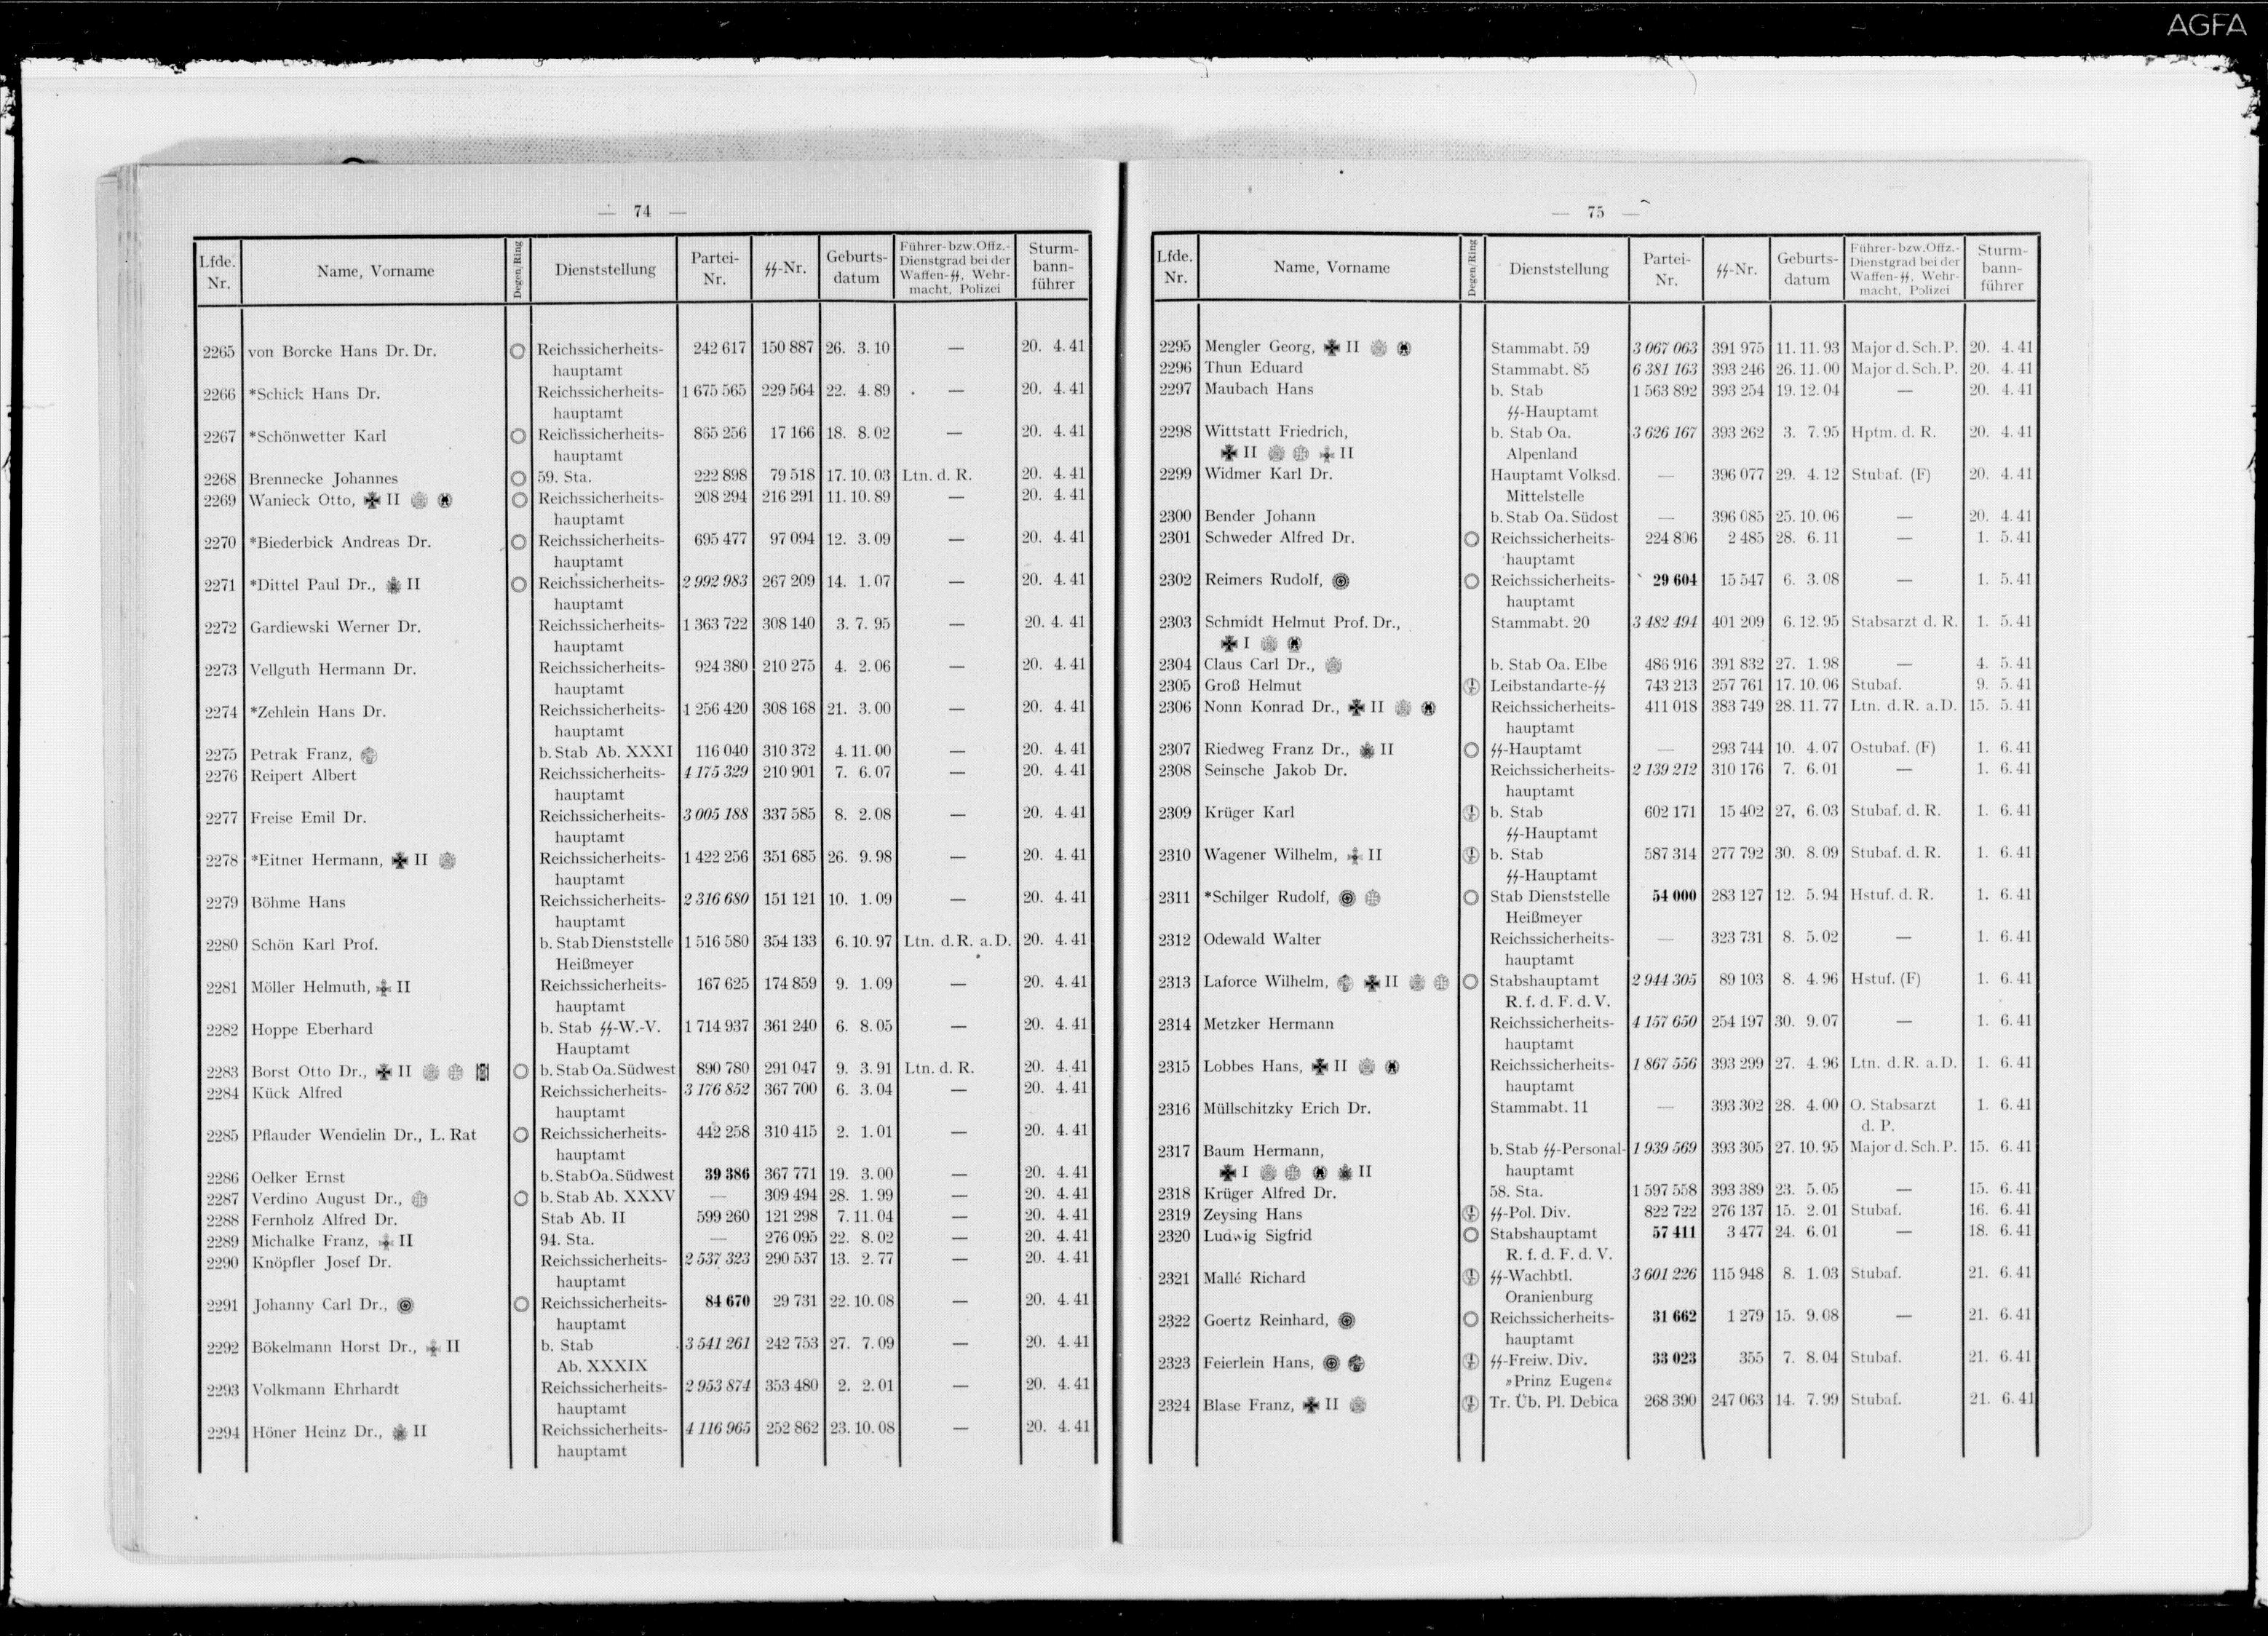 AGFA
— 74 —
Lfde. Nr. Name, Vorname Degen/Ring Dienststellung Partei-Nr. ᛋᛋ-Nr. Geburts-datum Führer- bzw. Offz.-Dienstgrad bei der Waffen-ᛋᛋ, Wehr-macht, Polizei Sturm-bann-führer
2265 von Borcke Hans Dr. Dr. Reichssicherheits- 242 617 150 887 26. 3. 10 — 20. 4. 41
hauptamt
2266 *Schick Hans Dr. Reichssicherheits- 1 675 565 229 564 22. 4. 89 — 20. 4. 41
hauptamt
2267 *Schönwetter Karl Reichssicherheits- 865 256 17 166 18. 8. 02 — 20. 4. 41
hauptamt
2268 Brennecke Johannes 59. Sta. 222 898 79 518 17. 10. 03 Ltn. d. R. 20. 4. 41
2269 Wanieck Otto, II Reichssicherheits- 208 294 216 291 11. 10. 89 — 20. 4. 41
hauptamt
2270 *Biederbick Andreas Dr. Reichssicherheits- 695 477 97 094 12. 3. 09 — 20. 4. 41
hauptamt
2271 *Dittel Paul Dr., II Reichssicherheits- 2 992 983 267 209 14. 1. 07 — 20. 4. 41
hauptamt
2272 Gardiewski Werner Dr. Reichssicherheits- 1 363 722 308 140 3. 7. 95 — 20. 4. 41
hauptamt
2273 Vellguth Hermann Dr. Reichssicherheits- 924 380 210 275 4. 2. 06 — 20. 4. 41
hauptamt
2274 *Zehlein Hans Dr. Reichssicherheits- 1 256 420 308 168 21. 3. 00 — 20. 4. 41
hauptamt
2275 Petrak Franz, b. Stab Ab. XXXI 116 040 310 372 4. 11. 00 — 20. 4. 41
2276 Reipert Albert Reichssicherheits- 4 175 329 210 901 7. 6. 07 — 20. 4. 41
hauptamt
2277 Freise Emil Dr. Reichssicherheits- 3 005 188 337 585 8. 2. 08 — 20. 4. 41
hauptamt
2278 *Eitner Hermann, II Reichssicherheits- 1 422 256 351 685 26. 9. 98 — 20. 4. 41
hauptamt
2279 Böhme Hans Reichssicherheits- 2 316 680 151 121 10. 1. 09 — 20. 4. 41
hauptamt
2280 Schön Karl Prof. b. Stab Dienststelle 1 516 580 354 133 6. 10. 97 Ltn. d. R. a. D. 20. 4. 41
Heißmeyer
2281 Möller Helmuth, II Reichssicherheits- 167 625 174 859 9. 1. 09 — 20. 4. 41
hauptamt
2282 Hoppe Eberhard b. Stab ᛋᛋ-W.-V. 1 714 937 361 240 6. 8. 05 — 20. 4. 41
Hauptamt
2283 Borst Otto Dr., II b. Stab Oa. Südwest 890 780 291 047 9. 3. 91 Ltn. d. R. 20. 4. 41
2284 Kück Alfred Reichssicherheits- 3 176 852 367 700 6. 3. 04 — 20. 4. 41
hauptamt
2285 Pflauder Wendelin Dr., L. Rat Reichssicherheits- 442 258 310 415 2. 1. 01 — 20. 4. 41
hauptamt
2286 Oelker Ernst b. Stab Oa. Südwest 39 386 367 771 19. 3. 00 — 20. 4. 41
2287 Verdino August Dr., b. Stab Ab. XXXV — 309 494 28. 1. 99 — 20. 4. 41
2288 Fernholz Alfred Dr. Stab Ab. II 599 260 121 298 7. 11. 04 — 20. 4. 41
2289 Michalke Franz, II 94. Sta. — 276 095 22. 8. 02 — 20. 4. 41
2290 Knöpfler Josef Dr. Reichssicherheits- 2 537 323 290 537 13. 2. 77 — 20. 4. 41
hauptamt
2291 Johanny Carl Dr., Reichssicherheits- 84 670 29 731 22. 10. 08 — 20. 4. 41
hauptamt
2292 Bökelmann Horst Dr., II b. Stab 3 541 261 242 753 27. 7. 09 — 20. 4. 41
Ab. XXXIX
2293 Volkmann Ehrhardt Reichssicherheits- 2 953 874 353 480 2. 2. 01 — 20. 4. 41
hauptamt
2294 Höner Heinz Dr., II Reichssicherheits- 4 116 965 252 862 23. 10. 08 — 20. 4. 41
hauptamt
— 75 —
Lfde. Nr. Name, Vorname Degen/Ring Dienststellung Partei-Nr. ᛋᛋ-Nr. Geburts-datum Führer- bzw. Offz.-Dienstgrad bei der Waffen-ᛋᛋ, Wehr-macht, Polizei Sturm-bann-führer
2295 Mengler Georg, II Stammabt. 59 3 067 063 391 975 11. 11. 93 Major d. Sch. P. 20. 4. 41
2296 Thun Eduard Stammabt. 85 6 381 163 393 246 26. 11. 00 Major d. Sch. P. 20. 4. 41
2297 Maubach Hans b. Stab 1 563 892 393 254 19. 12. 04 — 20. 4. 41
ᛋᛋ-Hauptamt
2298 Wittstatt Friedrich, b. Stab Oa. 3 626 167 393 262 3. 7. 95 Hptm. d. R. 20. 4. 41
II II Alpenland
2299 Widmer Karl Dr. Hauptamt Volksd. — 396 077 29. 4. 12 Stubaf. (F) 20. 4. 41
Mittelstelle
2300 Bender Johann b. Stab Oa. Südost — 396 085 25. 10. 06 — 20. 4. 41
2301 Schweder Alfred Dr. Reichssicherheits- 224 806 2 485 28. 6. 11 — 1. 5. 41
hauptamt
2302 Reimers Rudolf, Reichssicherheits- 29 604 15 547 6. 3. 08 — 1. 5. 41
hauptamt
2303 Schmidt Helmut Prof. Dr., Stammabt. 20 3 482 494 401 209 6. 12. 95 Stabsarzt d. R. 1. 5. 41
I
2304 Claus Carl Dr., b. Stab Oa. Elbe 486 916 391 832 27. 1. 98 — 4. 5. 41
2305 Groß Helmut Leibstandarte-ᛋᛋ 743 213 257 761 17. 10. 06 Stubaf. 9. 5. 41
2306 Nonn Konrad Dr., II Reichssicherheits- 411 018 383 749 28. 11. 77 Ltn. d. R. a. D. 15. 5. 41
hauptamt
2307 Riedweg Franz Dr., II ᛋᛋ-Hauptamt — 293 744 10. 4. 07 Ostubaf. (F) 1. 6. 41
2308 Seinsche Jakob Dr. Reichssicherheits- 2 139 212 310 176 7. 6. 01 — 1. 6. 41
hauptamt
2309 Krüger Karl b. Stab 602 171 15 402 27, 6. 03 Stubaf. d. R. 1. 6. 41
ᛋᛋ-Hauptamt
2310 Wagener Wilhelm, II b. Stab 587 314 277 792 30. 8. 09 Stubaf. d. R. 1. 6. 41
ᛋᛋ-Hauptamt
2311 *Schilger Rudolf, Stab Dienststelle 54 000 283 127 12. 5. 94 Hstuf. d. R. 1. 6. 41
Heißmeyer
2312 Odewald Walter Reichssicherheits- — 323 731 8. 5. 02 — 1. 6. 41
hauptamt
2313 Laforce Wilhelm, II Stabshauptamt 2 944 305 89 103 8. 4. 96 Hstuf. (F) 1. 6. 41
R. f. d. F. d. V.
2314 Metzker Hermann Reichssicherheits- 4 157 650 254 197 30. 9. 07 — 1. 6. 41
hauptamt
2315 Lobbes Hans, II Reichssicherheits- 1 867 556 393 299 27. 4. 96 Ltn. d. R. a. D. 1. 6. 41
hauptamt
2316 Müllschitzky Erich Dr. Stammabt. 11 — 393 302 28. 4. 00 O. Stabsarzt 1. 6. 41
d. P.
2317 Baum Hermann, b. Stab ᛋᛋ-Personal- 1 939 569 393 305 27. 10. 95 Major d. Sch. P. 15. 6. 41
I II hauptamt
2318 Krüger Alfred Dr. 58. Sta. 1 597 558 393 389 23. 5. 05 — 15. 6. 41
2319 Zeysing Hans ᛋᛋ-Pol. Div. 822 722 276 137 15. 2. 01 Stubaf. 16. 6. 41
2320 Ludwig Sigfrid Stabshauptamt 57 411 3 477 24. 6. 01 — 18. 6. 41
R. f. d. F. d. V.
2321 Mallé Richard ᛋᛋ-Wachbtl. 3 601 226 115 948 8. 1. 03 Stubaf. 21. 6. 41
Oranienburg
2322 Goertz Reinhard, Reichssicherheits- 31 662 1 279 15. 9. 08 — 21. 6. 41
hauptamt
2323 Feierlein Hans, ᛋᛋ-Freiw. Div. 33 023 355 7. 8. 04 Stubaf. 21. 6. 41
»Prinz Eugen«
2324 Blase Franz, II Tr. Üb. Pl. Debica 268 390 247 063 14. 7. 99 Stubaf. 21. 6. 41